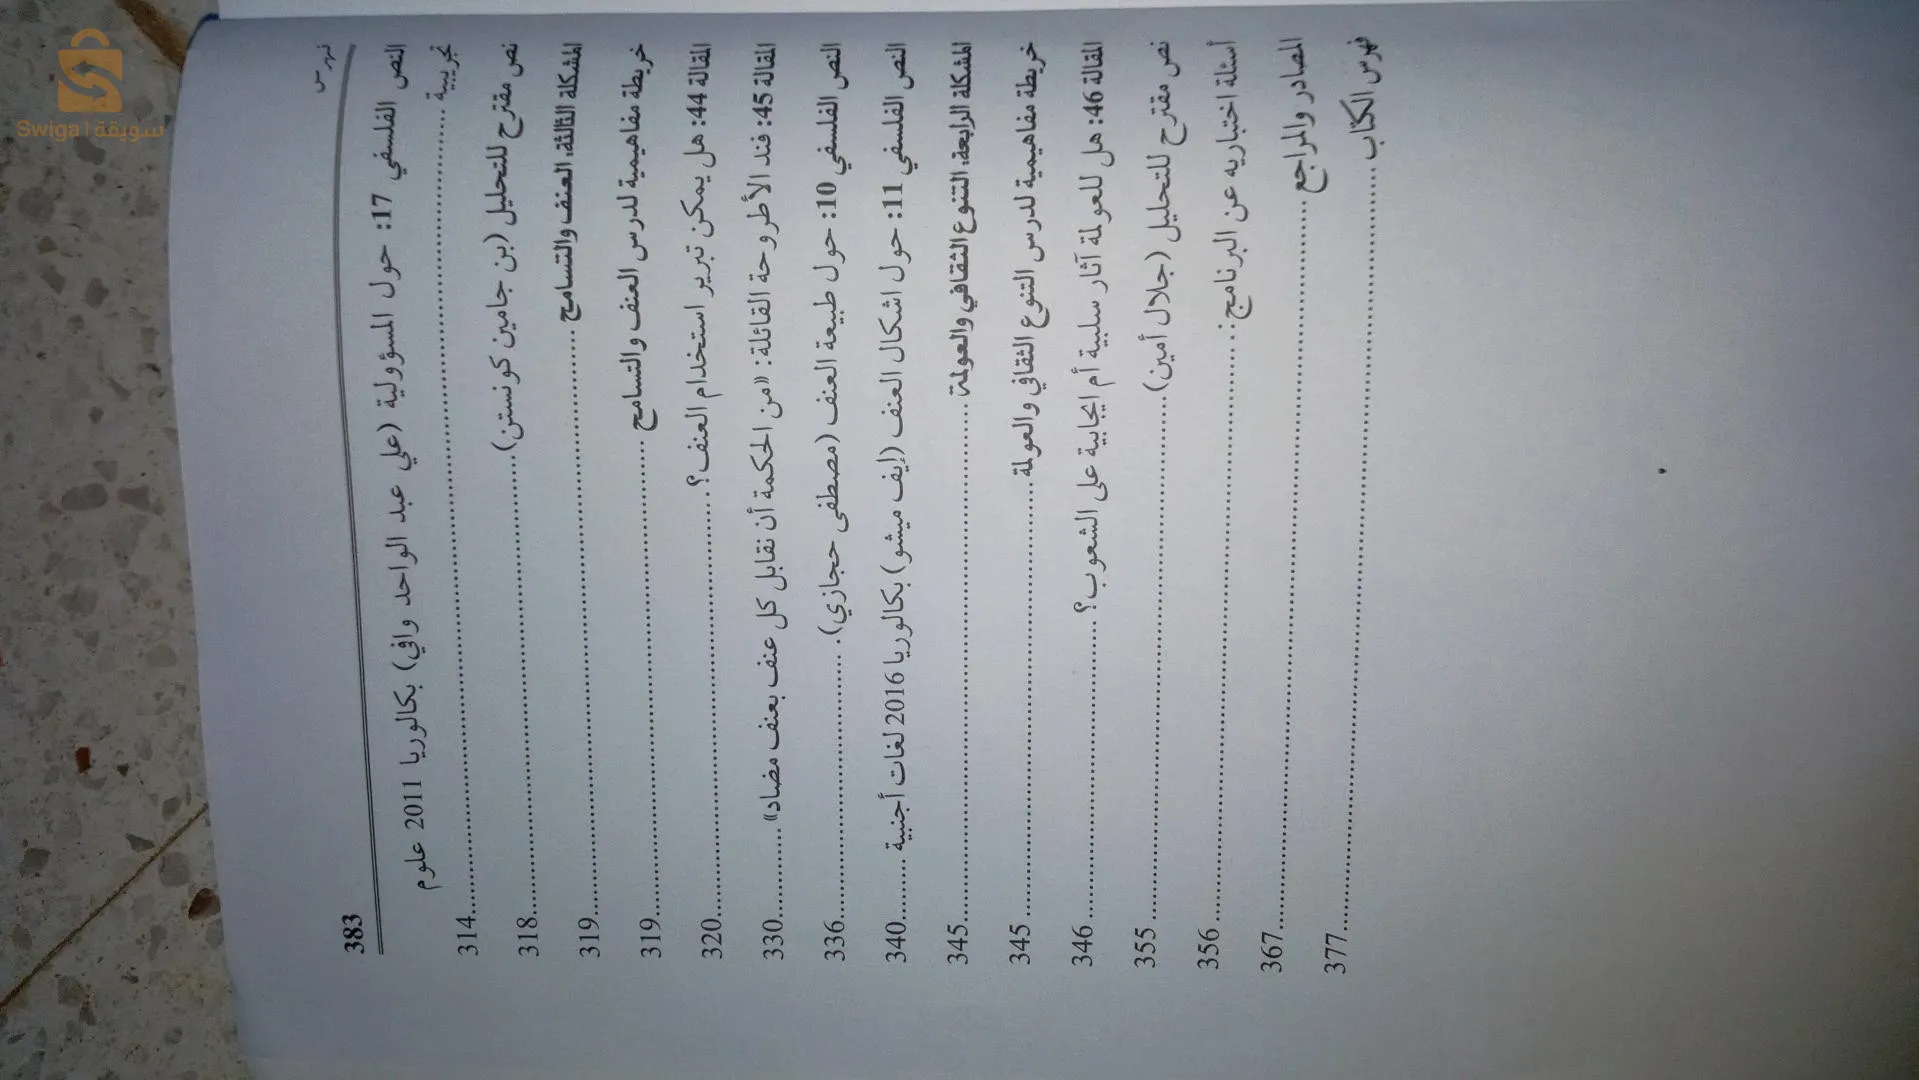 سويقة | Swiga
فهرس
383
النص الفلسفي 17: حول المسؤولية (علي عبد الواحد وافي) بكالوريا 2011 علوم
تجريبية ........ 314
نص مقترح للتحليل (بن جامين كونستن) ........ 318
المشكلة الثالثة: العنف والتسامح ........ 319
خريطة مفاهيمية لدرس العنف والتسامح ........ 319
المقالة 44: هل يمكن تبرير استخدام العنف؟ ........ 320
المقالة 45: فند الأطروحة القائلة: «من الحكمة أن نقابل كل عنف بعنف مضاد» ........ 330
النص الفلسفي 10: حول طبيعة العنف (مصطفى حجازي) ........ 336
النص الفلسفي 11: حول اشكال العنف (إيف ميشو) بكالوريا 2016 لغات أجنبية ........ 340
المشكلة الرابعة: التنوع الثقافي والعولمة ........ 345
خريطة مفاهيمية لدرس التنوع الثقافي والعولمة ........ 345
المقالة 46: هل للعولمة آثار سلبية أم ايجابية على الشعوب؟ ........ 346
نص مقترح للتحليل (جلال أمين) ........ 355
أسئلة اختباريه عن البرنامج: ........ 356
المصادر والمراجع ........ 367
فهرس الكتاب ........ 377